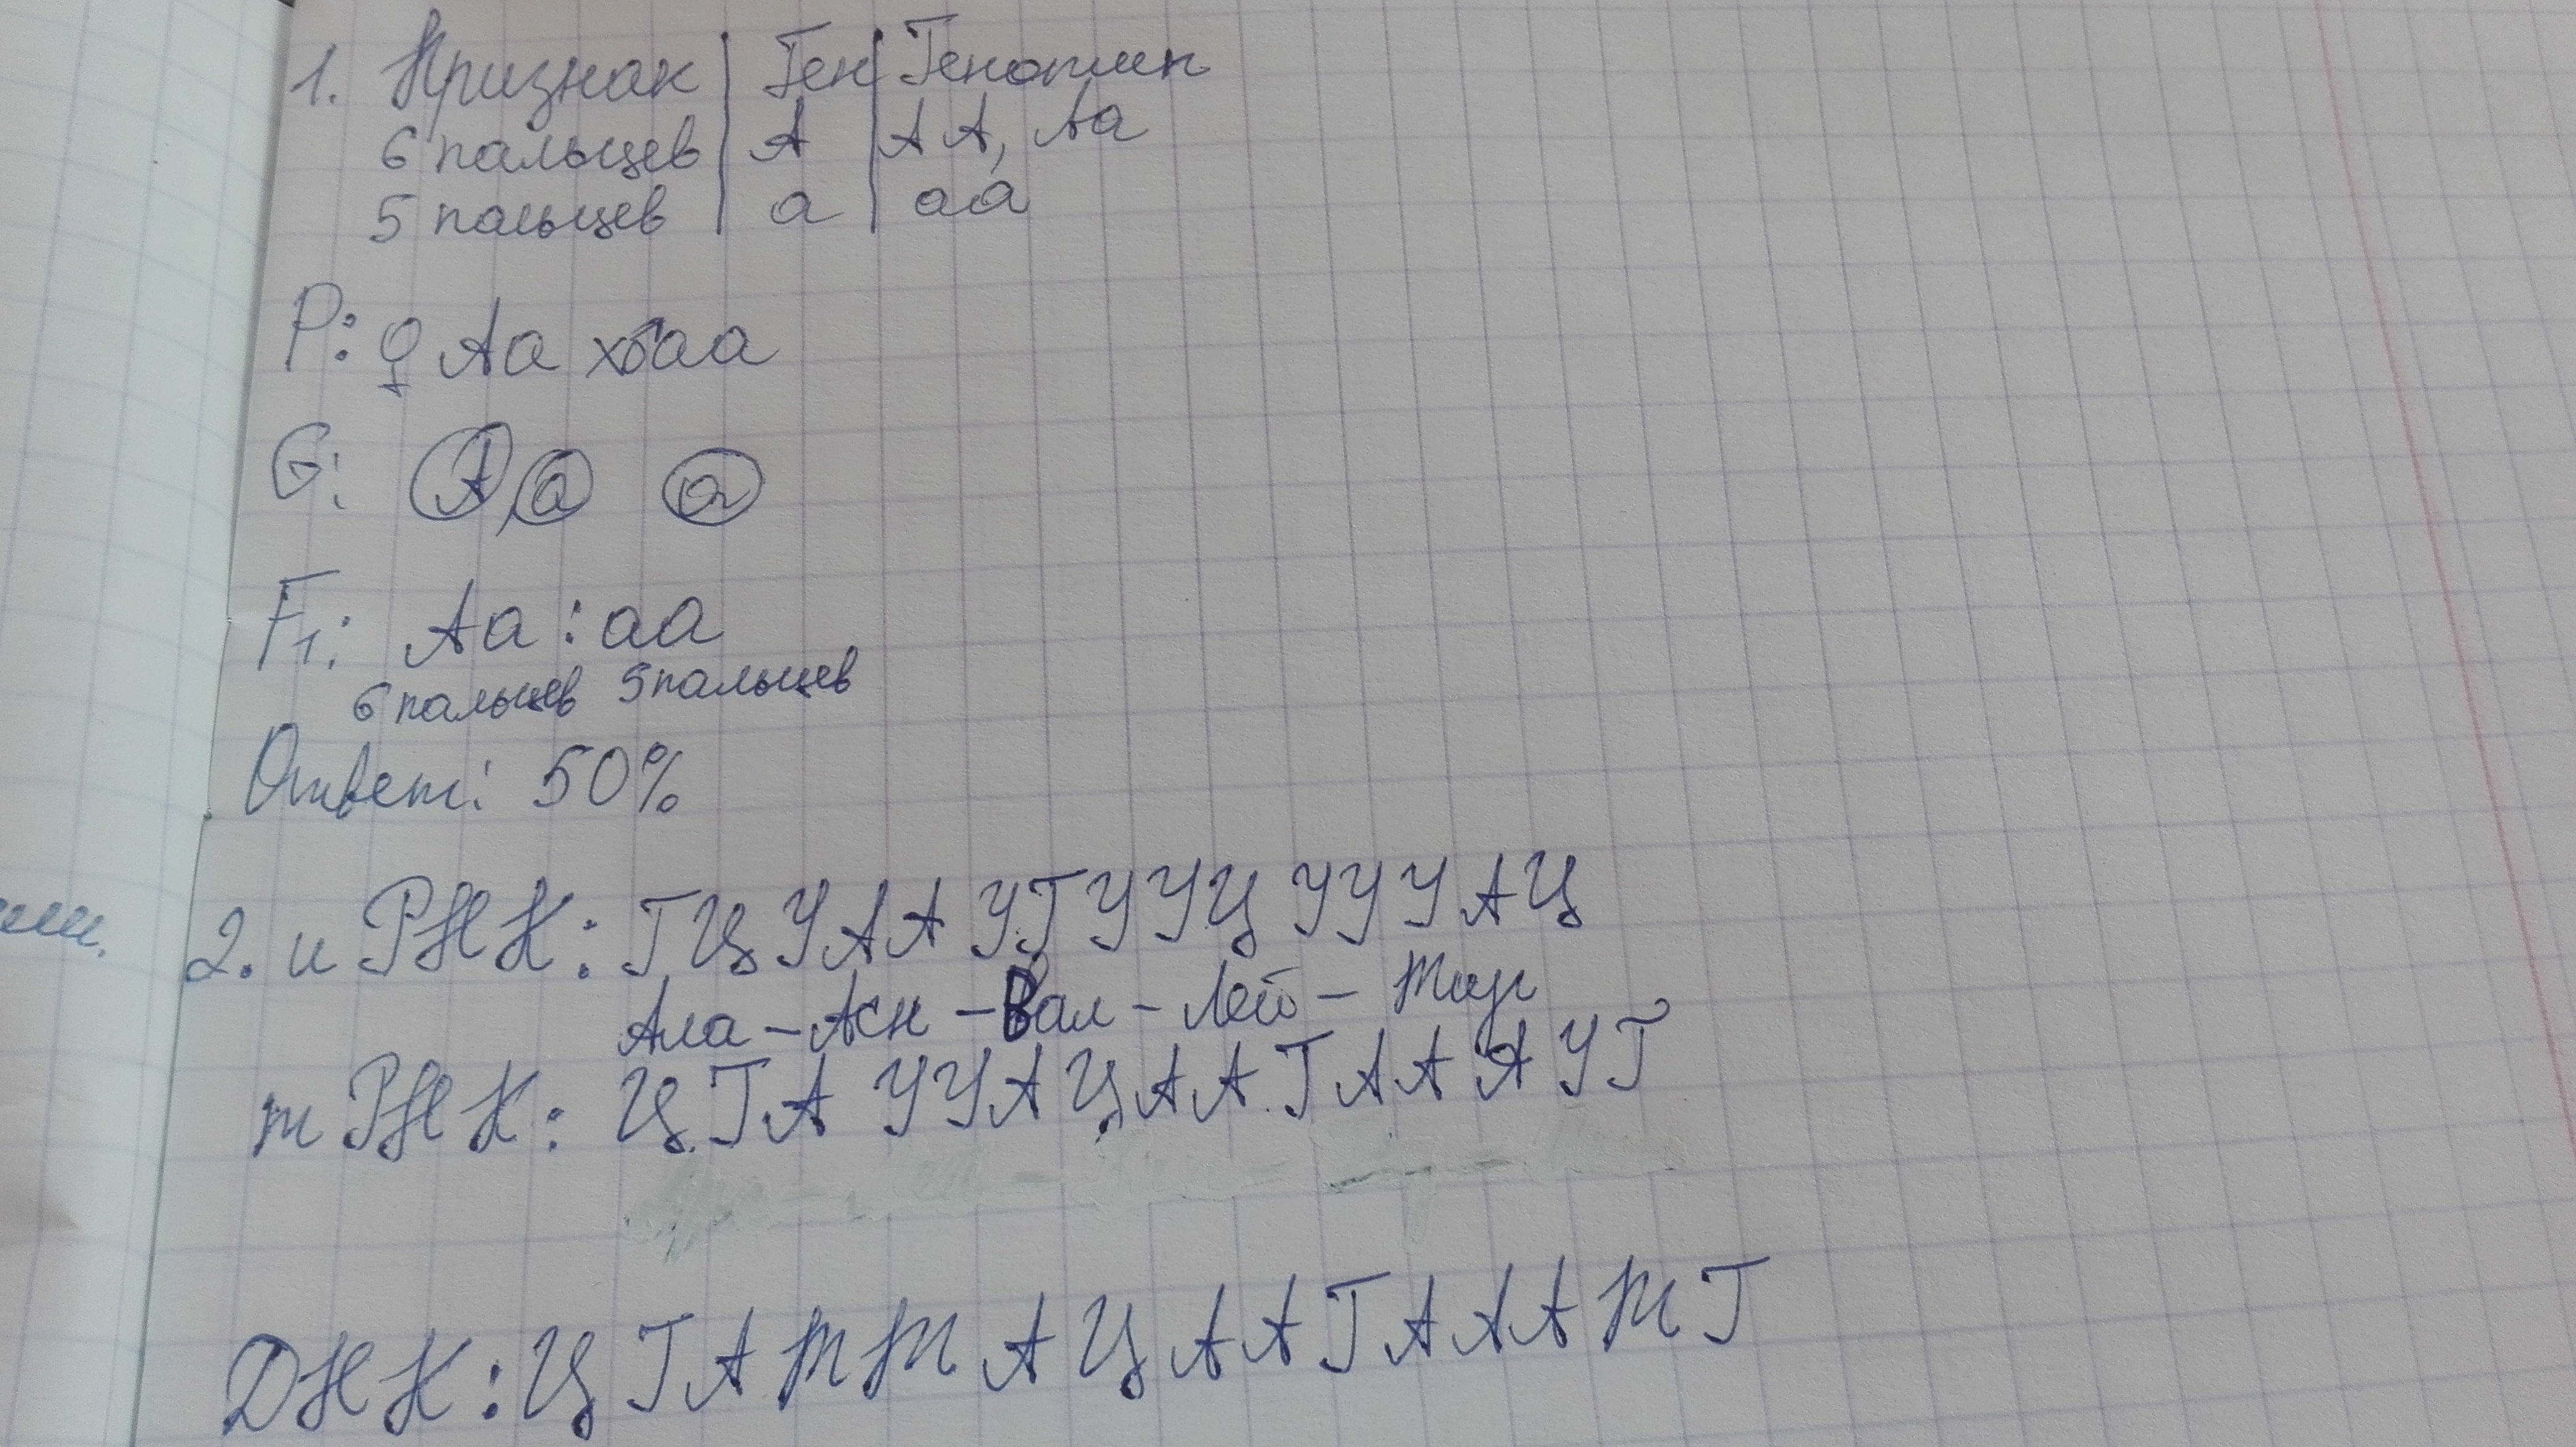 1. Признак | Ген | Генотип
6 пальцев | А | АА, Аа
5 пальцев | а | аа
P: ♀ Аа х ♂ аа
G: А, а а
F1: Аа : аа
6 пальцев 5 пальцев
Ответ: 50%
2. иРНК: ГЦУААУГУУЦУУУАЦ
Ала – Асн – Вал – Лей – Тир
тРНК: ЦГАУУАЦААГАААУГ
ДНК: ЦГАТТАЦААГАААТГ